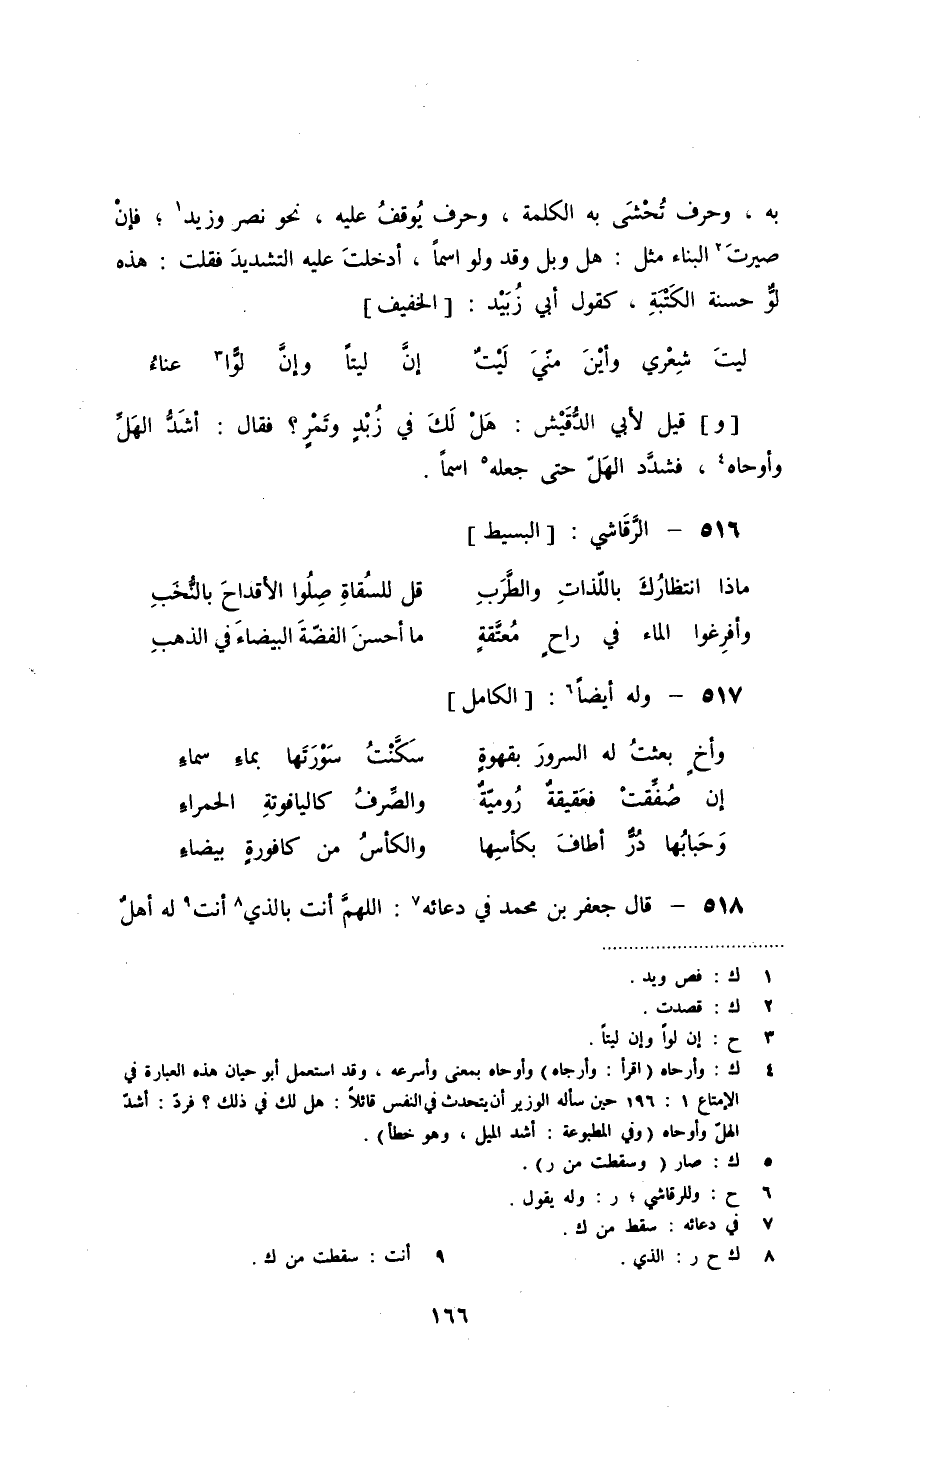 به ، وحرف تُحْشَى به الكلمة ، وحرف يُوقفُ عليه ، نحو نصر وزيد١ ؛ فإنْ
صيرتَ٢ البناء مثل : هل وبل وقد ولو اسماً ، أدخلتَ عليه التشديدَ فقلت : هذه
لوٌّ حسنة الكَتْبَةِ ، كقول أبي زُبَيْد : [ الخفيف ]
ليتَ شِعْري وأيْنَ منّيَ لَيْتٌ إنَّ ليتاً وإنَّ لوًّا٣ عناءُ
[ و ] قيل لأبي الدُّقَيْش : هَلْ لَكَ في زُبْدٍ وتَمْرٍ ؟ فقال : أشَدُّ الهَلِّ
وأوحاه٤ ، فشدَّد الهَلّ حتى جعله٥ اسماً .
٥١٦ – الرَّقَاشي : [ البسيط ]
ماذا انتظارُكَ باللّذاتِ والطَّرَبِ قل للسُقاةِ صِلُوا الأقداحَ بالنُّخَبِ
وأفرِغوا الماء في راحٍ مُعتَّقةٍ ما أحسنَ الفضّةَ البيضاءَ في الذهبِ
٥١٧ – وله أيضاً٦ : [ الكامل ]
وأخٍ بعثتُ له السرورَ بقهوةٍ سَكَّنْتُ سَوْرَتَها بماءِ سماءِ
إن صُفِّقتْ فعَقيقةٌ رُوميّةٌ والصِّرفُ كالياقوتةِ الحمراءِ
وَحَبابُها دُرٌّ أطافَ بكأسِها والكأسُ من كافورةٍ بيضاءِ
٥١٨ – قال جعفر بن محمد في دعائه٧ : اللهمَّ أنت بالذي٨ أنت٩ له أهلٌ
١ ك : فص ويد .
٢ ك : قصدت .
٣ ح : إن لواً وإن ليتاً .
٤ ك : وأرحاه ( اقرأ : وأرجاه ) وأوحاه بمعنى وأسرعه ، وقد استعمل أبو حيان هذه العبارة في
الإمتاع ١ : ١٩٦ حين سأله الوزير أن يتحدث في النفس قائلاً : هل لك في ذلك ؟ فردّ : أشدّ
الهلّ وأوحاه ( وفي المطبوعة : أشد الميل ، وهو خطأ ) .
٥ ك : صار ( وسقطت من ر ) .
٦ ح : وللرقاشي ؛ ر : وله يقول .
٧ في دعائه : سقط من ك .
٨ ك ح ر : الذي . ٩ أنت : سقطت من ك .
١٦٦